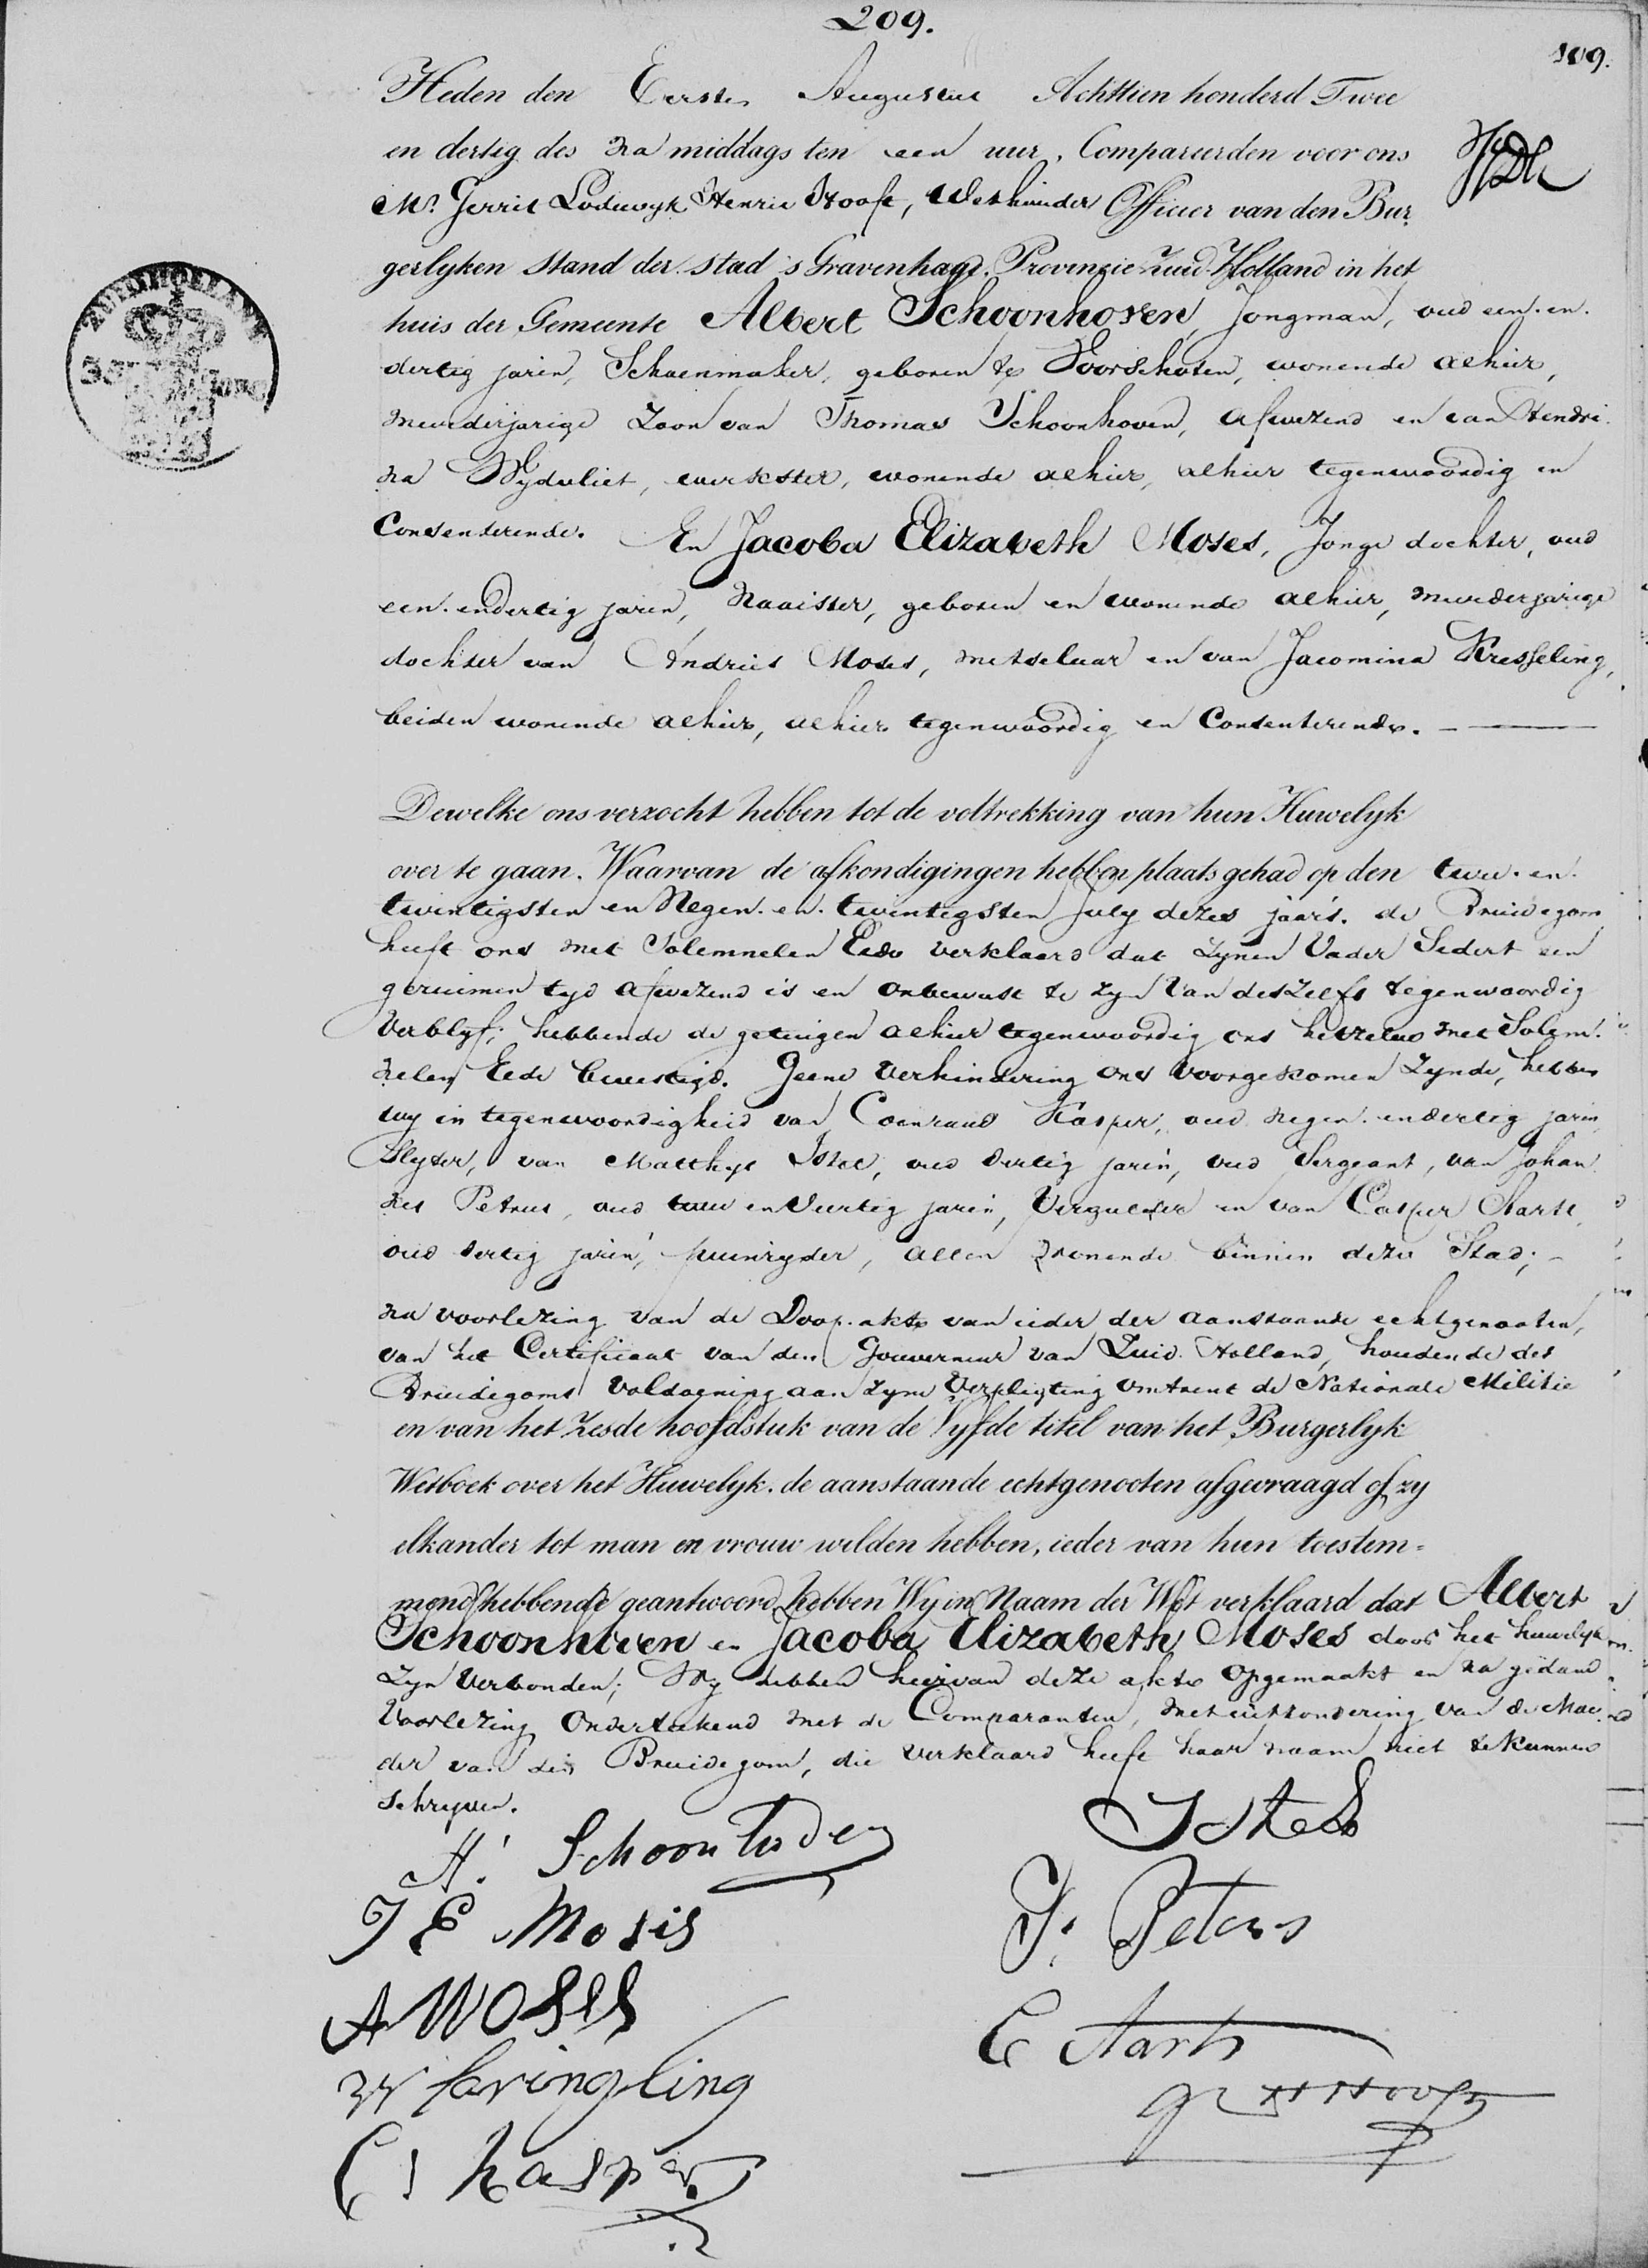 209.
109.
Heden den Eersten Augustus Achttien honderd Twee
en dertig des na middags ten een uur, Compareerden voor ons
Mr. Gerrit Lodewyk Henrie Hooft, Wethouder Officier van den Bur
gerlyken Stand der stad 's Gravenhage, Provincie Zuid-Holland in het
huis der Gemeente Albert Schoonhoven, Jongman, oud een-en-
dertig jaren, Schoenmaker, geboren te Voorschoten, wonende alhier,
meerderjarige Zoon van Thomas Schoonhoven, afwezend en van Hendri
na Wydvliet, werkster, wonende alhier, alhier tegenwoordig en
Consenterende. En Jacoba Elizabeth Moses, Jonge dochter, oud
een-en dertig jaren, Naaister, geboren en wonende alhier, meerderjarige
dochter van Andries Moses, metselaar en van Jacomina Kresseling,
beiden wonende alhier, alhier tegenwoordig en Consenterende.
Dewelke ons verzocht hebben tot de voltrekking van hun Huwelyk
over te gaan. Waarvan de afkondigingen hebben plaats gehad op den twee-en-
twintigsten en Negen-en-twintigsten July dezes jaars. de Bruidegom
heeft ons met Solemnelen Eede verklaard dat Zynen Vader Sedert een
geruimen tyd afwezend is en onbewust te zyn van deszelfs tegenwoordig
Verblyf; hebbende de getuigen alhier tegenwoordig ons hetzelve met Solem
nelen Eede bevestigd. Geene Verhindering ons voorgekomen Zynde, hebben
wy in tegenwoordigheid van Coenraad Kasper, oud negen-en dertig jaren,
Slyter, van Matthys Istel, oud dertig jaren, oud Sergeant, van Johan
nes Petrus, oud twee en Veertig jaren, Vergulder en van Casper Aarts,
oud dertig jaren, puinryder, allen wonende binnen deze Stad;
na voorlezing van de Doop-akte van ieder der aanstaande echtgenooten,
van het Certificaat van den Gouverneur van Zuid-Holland, houdende des
Bruidegoms Voldoening aan zyne Verpligting omtrent de Nationale Militie
en van het Zesde hoofdstuk van de Vyfde titel van het Burgerlyk
Wetboek over het Huwelyk, de aanstaande echtgenooten afgevraagd of zy
elkander tot man en vrouw wilden hebben, ieder van hun toestem=
mend hebbende geantwoord, hebben Wy in Naam der Wet verklaard dat Albert
Schoonhoven en Jacoba Elizabeth Moses door het huwelyk
Zyn Verbonden; Wy hebben hiervan deze akte Opgemaakt en na gedane
Voorlezing Onderteekend met de Comparanten, met uitzondering van de Moe
der van den Bruidegom, die verklaard heeft haar naam niet te kunnen
Schryven.
A. Schoonhoden
Istel
J E Moses
J. Peters
A Moses
C Aarts
C. Kasper
G L H Hooft